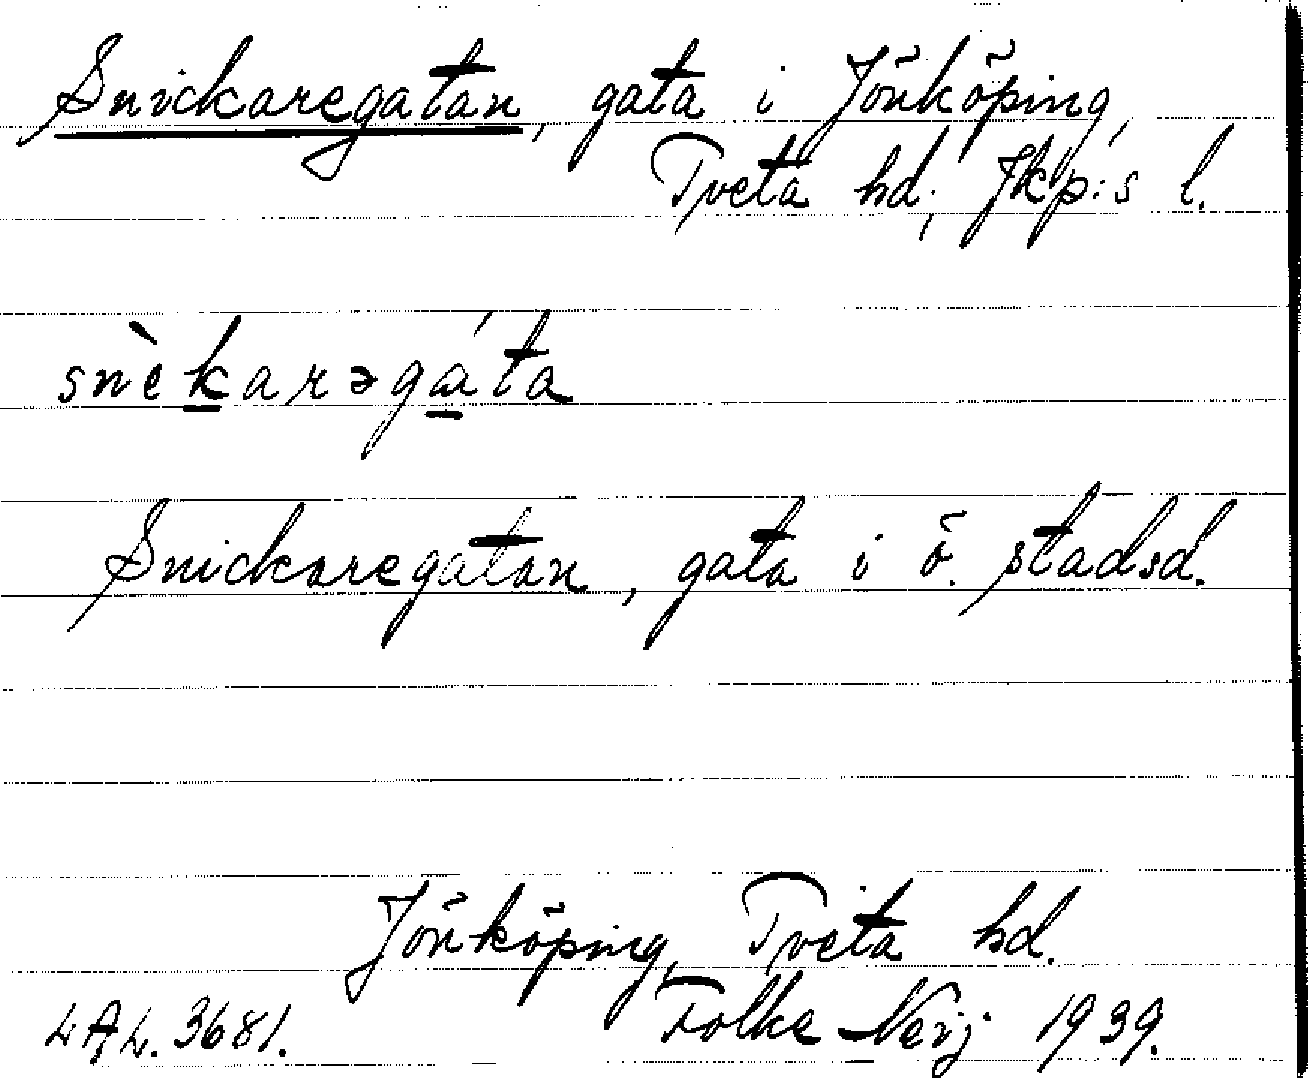 Snickaregatan, gata i Jönköping,
Tveta hd; Jkp:s l.
snèkarəgáta
Snickaregatan, gata i ö. stadsd.
Jönköping, Tveta hd.
LAL. 3681. Folke Neij 1939.